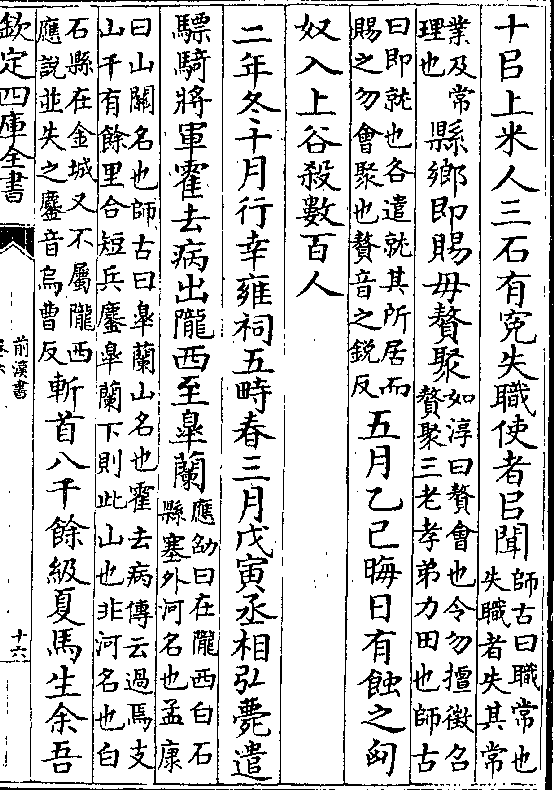 十㠯上米人三石有寃失職使者㠯聞師古曰職常也失職者失其常
業及常理也縣鄉即賜毋贅聚如淳曰贅會也令勿擅徵召贅聚三老孝弟力田也師古
曰即就也各遣就其所居而賜之勿會聚也贅音之銳反五月乙巳晦日有蝕之匈
奴入上谷殺數百人
二年冬十月行幸雍祠五畤春三月戊寅丞相弘薨遣
驃騎將軍霍去病出隴西至臯蘭應劭曰在隴西白石縣塞外河名也孟康
曰山關名也師古曰臯蘭山名也霍去病傳云過焉支山千有餘里合短兵鏖臯蘭下則此山也非河名也白
石縣在金城又不屬隴西應說並失之鏖音烏曹反斬首八千餘級夏馬生余吾
欽定四庫全書
前漢書
卷六
十六